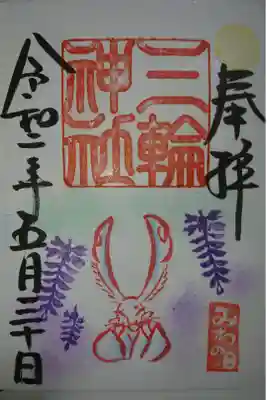 奉拝
三輪
神社
令和二年五月三十日
みわの日